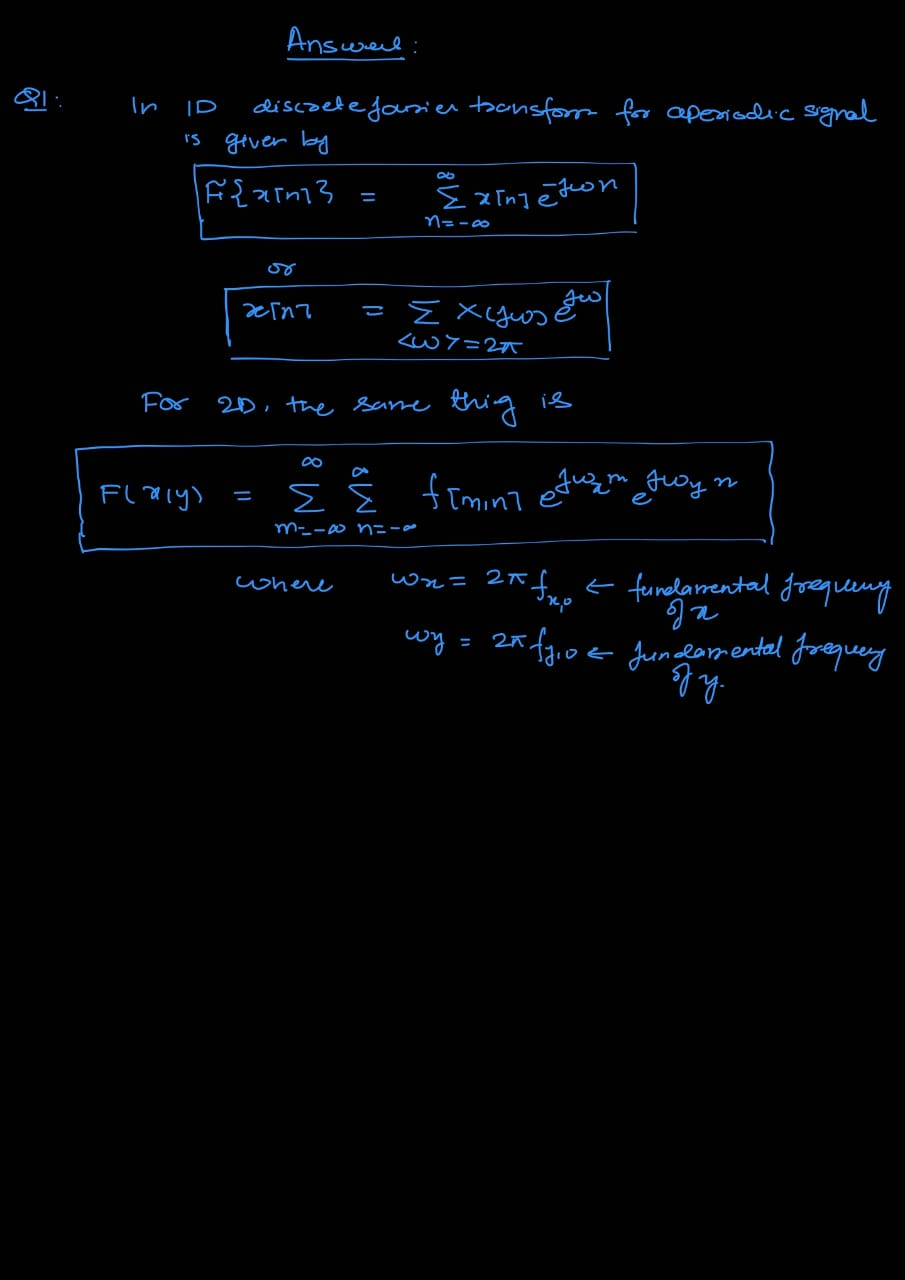 Answer :
Q1: In 1D discrete fourier transform for aperiodic signal
is given by
F{x[n]} = ∞ Σ n=-∞ x[n] e^-jωn
or
x[n] = Σ <ω>=2π X(jω) e^jω
For 2D, the same thig is
F(x,y) = ∞ Σ m=-∞ ∞ Σ n=-∞ f[m,n] e^jωx m e^jωy n
where ωx = 2π fx,0 ← fundamental frequency
of x
ωy = 2π fy,0 ← fundamental frequency
of y.